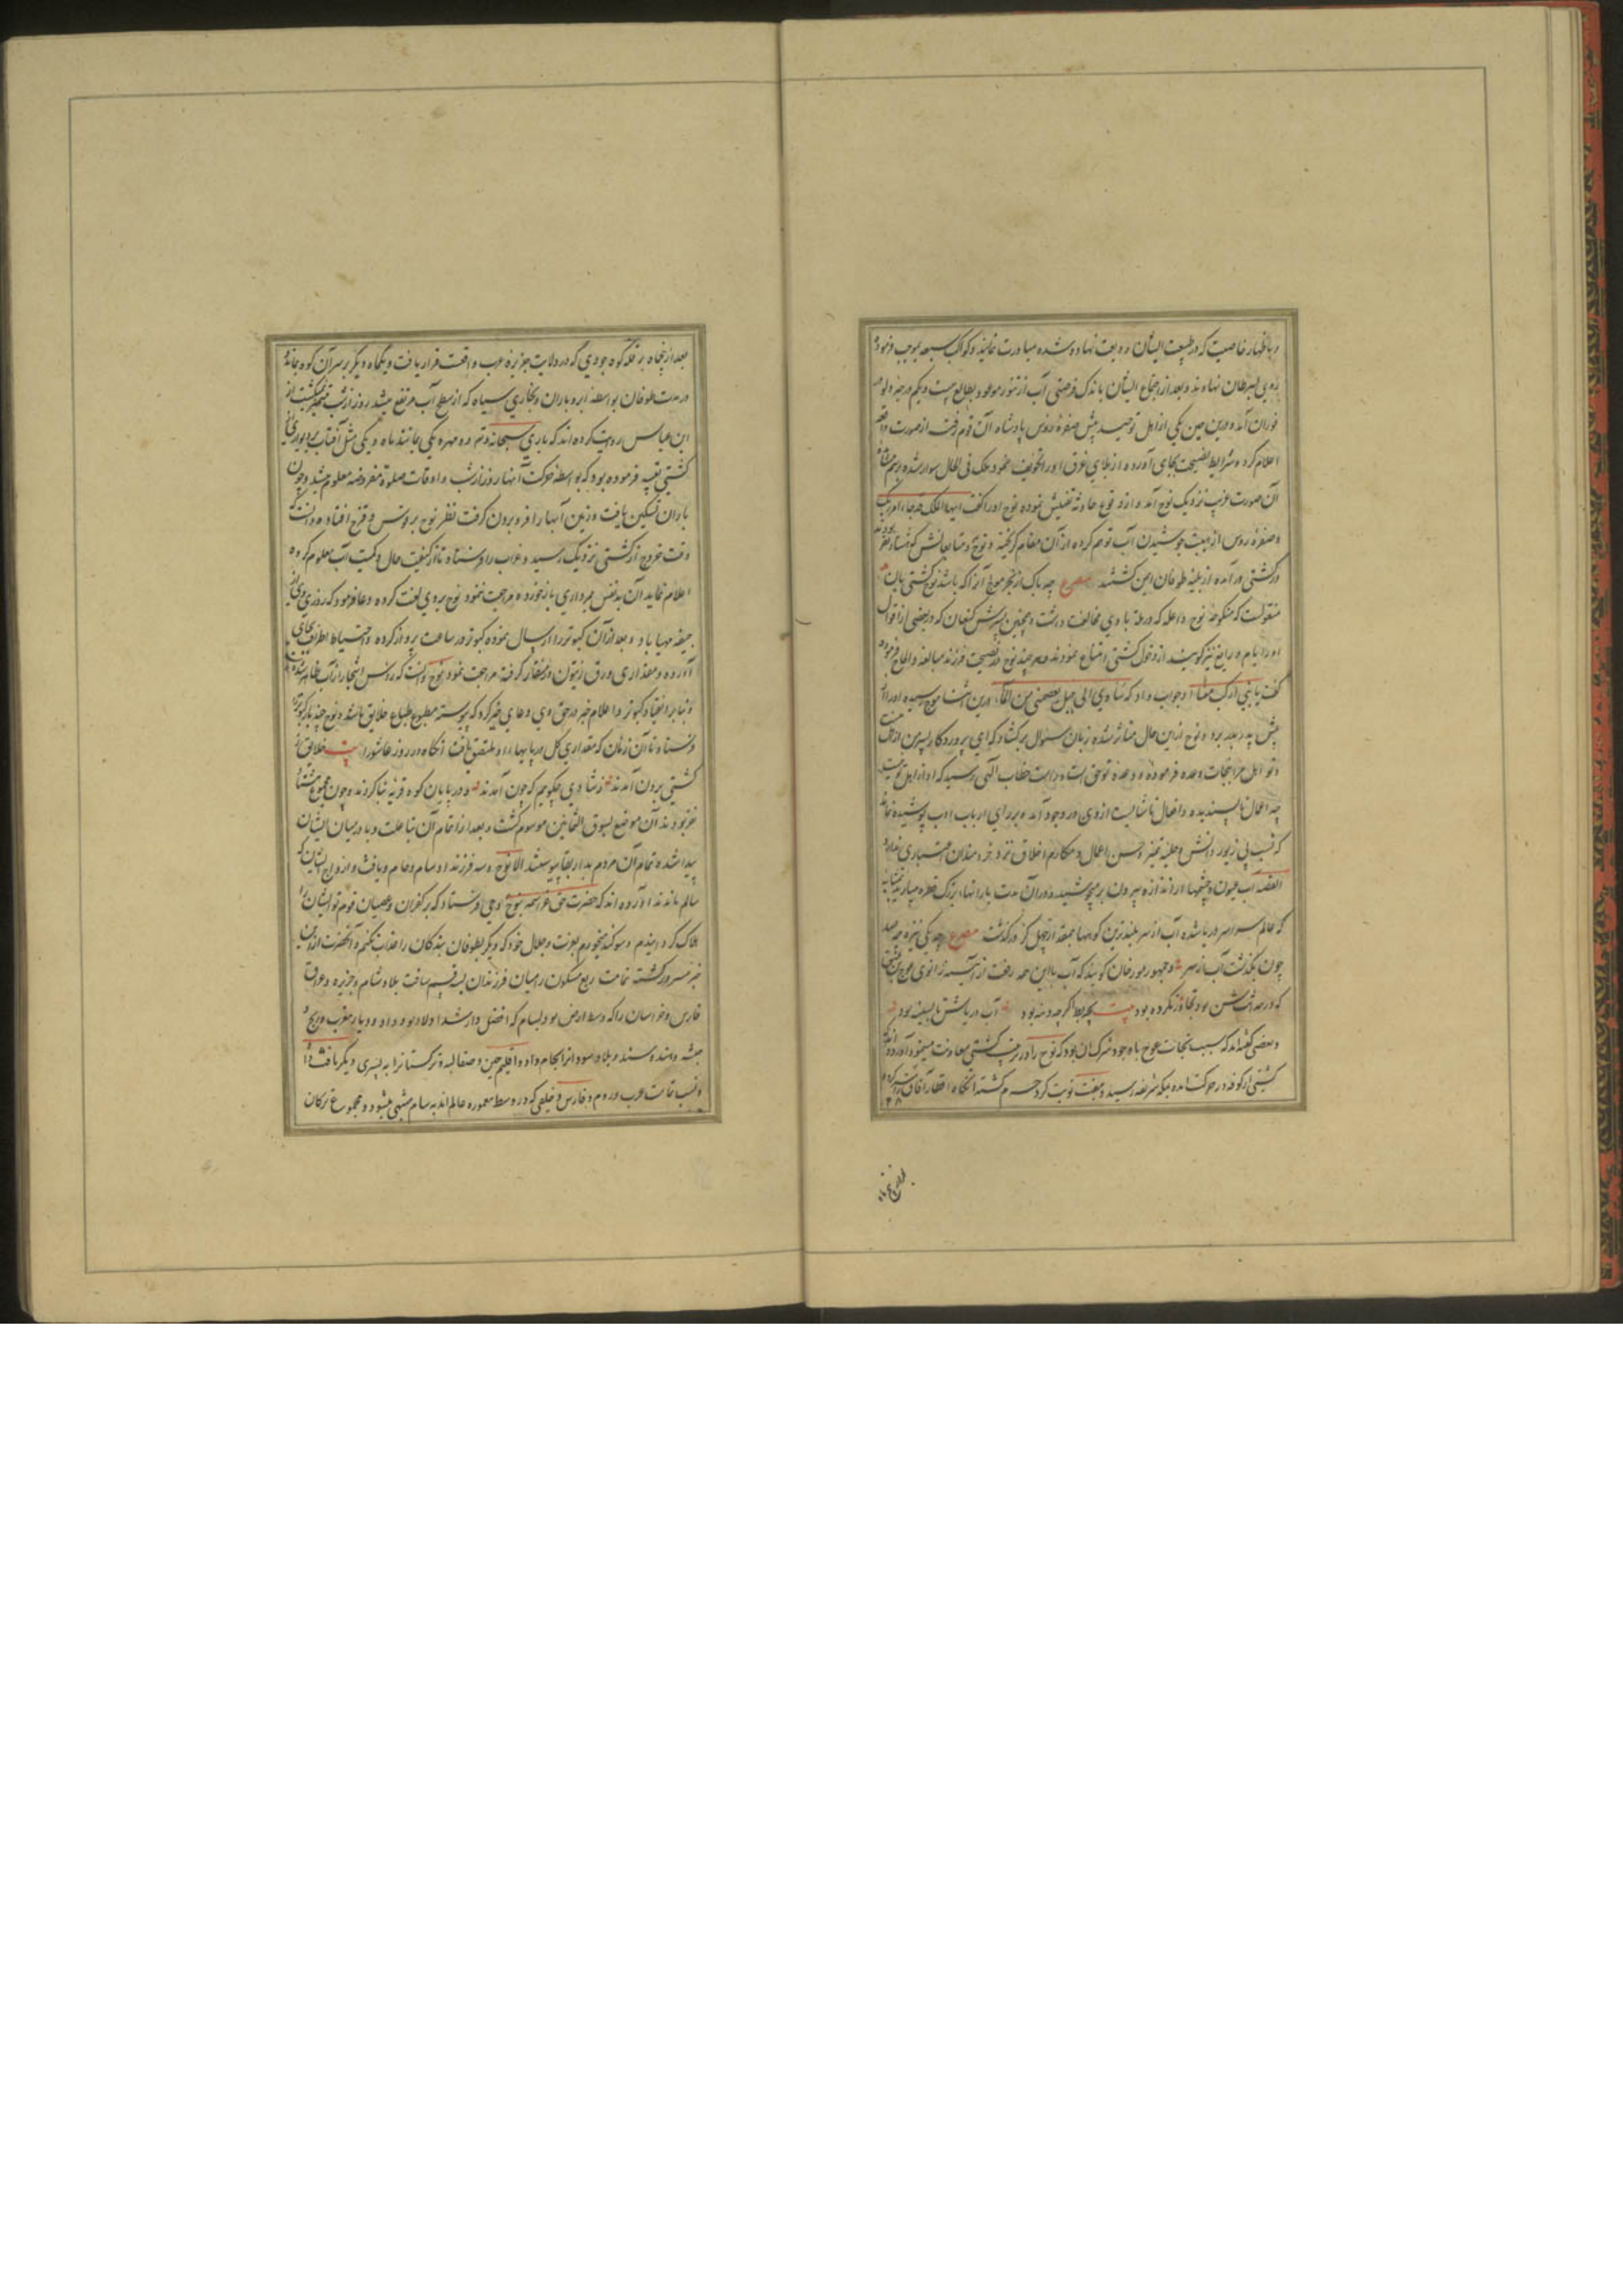 و باظهار خاصیت که در طبیعت ایشان ودیعت نهاده شده مبادرت نمایند و کواکب سبعه بموجب فرموده
روی بسرطان نهادند و بعد از اجتماع ایشان باندک فرصتی آب از تنور موعود بطالع بیست و یکم درجه دلو در
فوران آمد و درین حین یکی از اهل توحید پیش صفرۀ روس پادشاه آن قوم رفت از صورت واقعه
اعلام کرد و شرایط نصیحت بجای آورده از بلای غرق او را تخویف نمود و ملک فی الحال سوار شده برسم مشاهده
آن صورت غریب نزدیک نوح آمد و از وقوع حادثه تفتیش نموده نوح او را گفت ایها الملک قد جاء امر ربک
و صفرۀ روس از هیبت جوشیدن آب توهم کرده از آن مقام گریخته و نوح و متابعانش که هشتاد نفر بودند
در کشتی در آمده از بلیه طوفان ایمن گشتند مصرع چه باک از بحر موج آنرا که باشد نوح کشتی بان
منقولست که منکوحه نوح واعله که در ملة با وی مخالفت داشت و همچنین پسرش کنعان که در بعضی از اقوال
او را یام و رایغ نیز گویند از دخول کشتی امتناع نمودند و هر چند نوح در نصیحت فرزند مبالغه و الحاح فرموده
گفت یا بنی ارکب معنا او جواب داد که سآوی الی جبل یعصمنی من المآء درین اثنا موج رسیده او را از
پیش پدر بدر برد و نوح از این حال متاثر شده زبان سئوال برکشاد که ای پروردگار پسر من از اهل منست
و تو اهل مرا نجات وعده فرموده و وعده تو حق است خطاب الهی رسید که او از اهل تو نیست
چه اعمال ناپسندیده و افعال ناشایست از وی در وجود آمده و بر رای ارباب ادب پوشیده نماند
که نسب بی زیور دانش و حلیه تمیز و حسن اعمال و مکارم اخلاق نزد خردمندان اعتباری ندارد
القصه آب عیون و چشمها از اندازه بیرون برمیجوشید و در آن مدت بارانها بزرگ قطره میبارید بمثابه
که عالم سراسر دریا شده آب از سر بلندترین کوهها بمقدار چهل گز درگذشت مصرع چه یکی نیزه چه صد
چون بگذشت آب از سر و جمهور مورخان گویند که آب با این همه رفعت از آینه زانوی عوج بن عنق
که در حد اث سن بود تجاوز نکرده بود بیت بحیط ار چه دمنه بود آب دریاش تا بسینه بود
و بعضی گفته‌اند که سبب نجات عوج با وجود شرک آن بود که نوح را در ترتیب کشتی معاونت مینمود آورده‌اند که
کشتی از کوفه در حرکت آمده بمکه شریفه رسید و هفت نوبت گرد حرم گشته آنگاه اقطار آفاق را سیر کرده
بعد از پنجاه بر قله کوه جودی که در ولایت جزیره عرب واقعست قرار یافت و یکماه دیگر بر سر آن کوه بمانده
در مدت طوفان بواسطه ابر و باران و بخاری سیاه که از سطح آب مرتفع میشد روز از شب متمیز نمیگشت از
ابن عباس روایت کرده‌اند که باری سبحانه و تعالی دو مهره یکی مانند ماه و یکی مثل آفتاب بر دیوارهای
کشتی تعبیه فرموده بود که بواسطه حرکت آنها روز از شب و اوقات صلوة مفروضه معلوم میشد و چون
باران تسکین یافت و زمین آبها را فرو بردن گرفت نظر نوح بر قوس و قزح افتاده دانست که
وقت خروج از کشتی نزدیک رسید و غراب را فرستاد تا از کیفیت حال و کمیت آب معلوم کرده
اعلام نماید آن بدنفس بمرداری باز خورده مراجعت ننمود نوح بر وی لعنت کرده دعا فرمود که روزی وی از
جیفه مهیا باد و بعد از آن کبوتر را ارسال نموده کبوتر در ساعت پرواز کرده و احتیاط اطراف بجای
آورده و مقداری ورق زیتون در منقار گرفته مراجعت نمود نوح دانست که رؤس اشجار از آب ظاهر شده است
و بنابر انقیاد کبوتر و اعلام خبر در حق وی دعای خیر کرد که پیوسته مطبوع طباع خلایق باشد و نوح چند بار کبوتر را
فرستاد تا آن زمان که مقداری گل در پایهاء او ملتصق یافت آنگاه در روز عاشورا بیت خلایق ز
کشتی برون آمدند ز شادی چگویم که چون آمدند و در پایان کوه قریه بنا کردند و چون مجموع هشتاد
نفر بودند آن موضع بسوق الثمانین موسوم گشت و بعد از اتمام آن بنا علت وبا در میان ایشان
پیدا شده تمام آن مردم بدار بقا پیوستند الا نوح و سه فرزند او سام و حام و یافث و ازواج ایشان که
سالم ماندند آورده‌اند که حضرت حق عز اسمه بنوح وحی فرستاد که بر کفران و عصیان قوم تو ایشان را
هلاک گردانیدم و سوگند میخورم بعزت و جلال خود که دیگر بطوفان بندگان را عذاب نکنم آنحضرت ازین
خبر مسرور گشته تمامت ربع مسکون را میان فرزندان بسه قسم ساخت بلاد شام و جزیره و عراق
فارس و خراسان را که وسط ارض بود بسام که افضل و ارشد اولاد بود داد و دیار مغرب و زنج و
حبشه و هند و سند و بلاد سودان را بحام داد و اقلیم چین و صقالبه و ترکستان را به پسری دیگر یافث داد
و نسب تمامت عرب و روم و فارس و خلقی که در وسط معموره عالم‌اند به سام منتهی میشود و مجموع ترکان